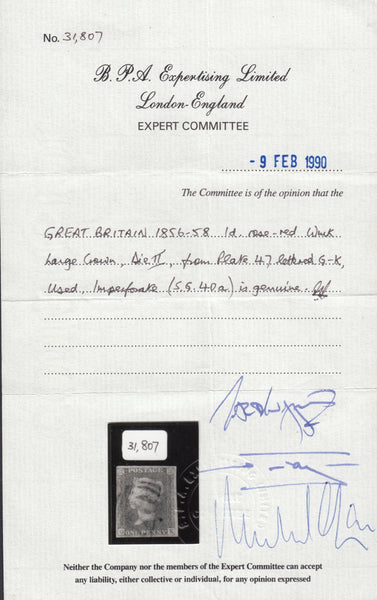 No. 31,807
B.P.A. Expertising Limited
London-England
EXPERT COMMITTEE
- 9 FEB 1990
The Committee is of the opinion that the
GREAT BRITAIN 1856-58 1d. rose-red Wmk
Large Crown, Die II, from Plate 47 lettered G-K,
Used, Imperforate (S.G. 40a) is genuine.
31,807
POSTAGE
ONE PENNY
Neither the Company nor the members of the Expert Committee can accept
any liability, either collective or individual, for any opinion expressed